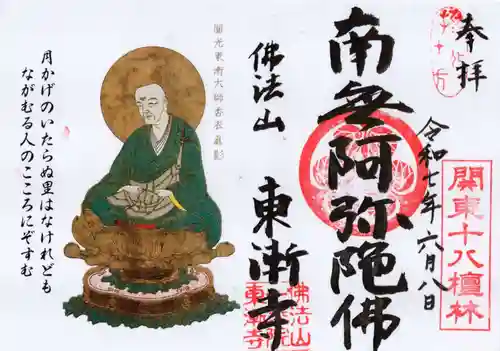 奉拝
令和七年六月八日
関東十八檀林
南無阿弥陀佛
佛法山
東漸寺
佛法山
東漸寺
圓光東漸大師香衣眞影
月かげのいたらぬ里はなけれども
ながむる人のこころにぞすむ